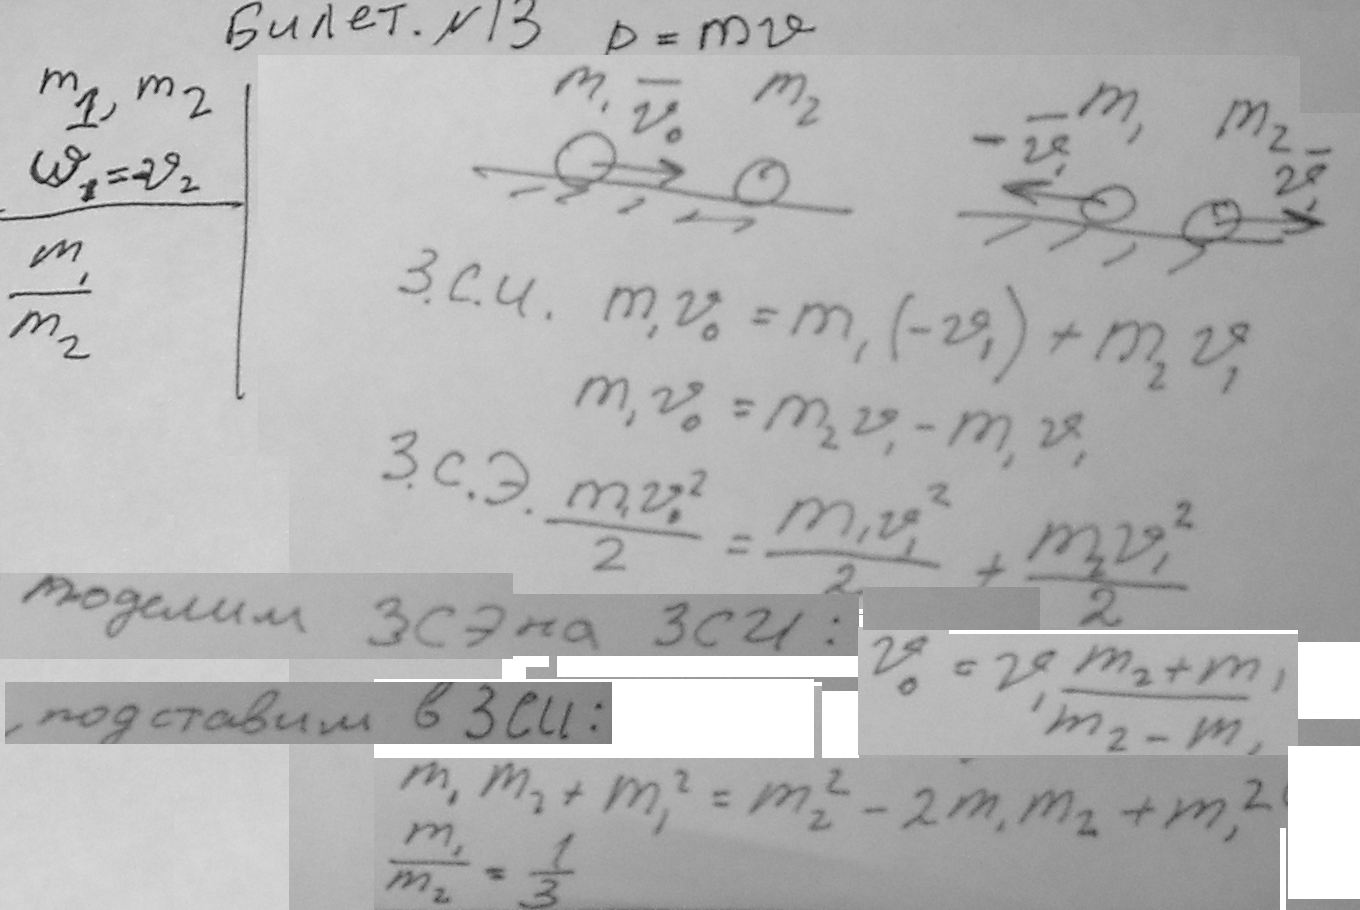 Билет. №13 p = mv
m₁, m₂
v₁ = -v₂
m₁/m₂
m₁ v̄₀ m₂
-v̄₁ m₁ m₂ v̄₁
З.С.И. m₁v₀ = m₁(-v₁) + m₂v₁
m₁v₀ = m₂v₁ - m₁v₁
З.С.Э. m₁v₀²/2 = m₁v₁²/2 + m₂v₁²/2
поделим ЗСЭ на ЗСИ:
v₀ = v₁ (m₂ + m₁)/(m₂ - m₁)
, подставим в ЗСИ:
m₁m₂ + m₁² = m₂² - 2m₁m₂ + m₁²
m₁/m₂ = 1/3